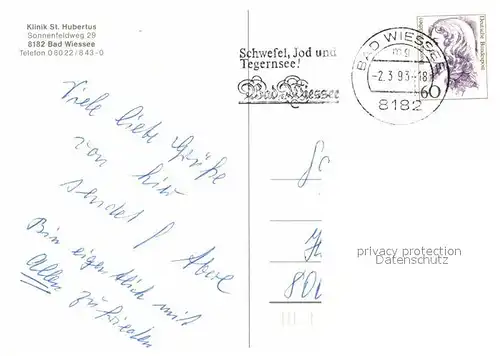 Klinik St. Hubertus
Sonnenfeldweg 29
8182 Bad Wiessee
Telefon 08022/843-0
Viele liebe Grüße
von hier
sendet
Bin eigentlich mit
Allem zufrieden
Schwefel, Jod und
Tegernsee!
Bad Wiessee
BAD WIESSEE
mg
-2.3.93-18
8182
Deutsche Bundespost
60
privacy protection
Datenschutz